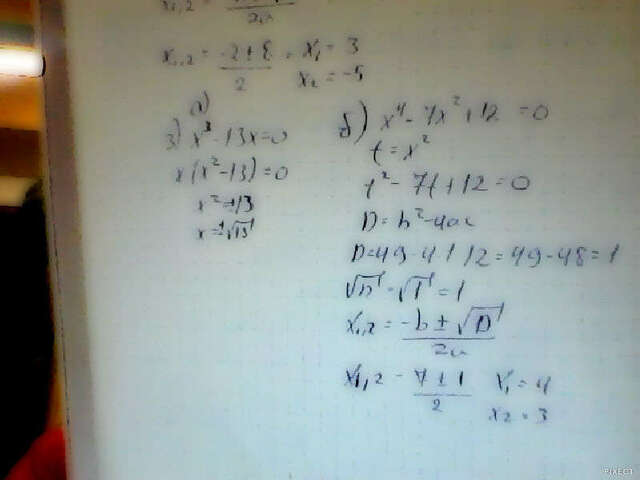 x₁,₂ =
2a
x₁,₂ = -2 ± 8 / 2 = x₁ = 3
x₂ = -5
а)
3) x³ - 13x = 0
x(x² - 13) = 0
x² = 13
x = ±√13
б) x⁴ - 7x² + 12 = 0
t = x²
t² - 7t + 12 = 0
D = b² - 4ac
D = 49 - 4·1·12 = 49 - 48 = 1
√D = √1 = 1
x₁,₂ = -b ± √D / 2a
x₁,₂ = 7 ± 1 / 2 x₁ = 4
x₂ = 3
PIXECT